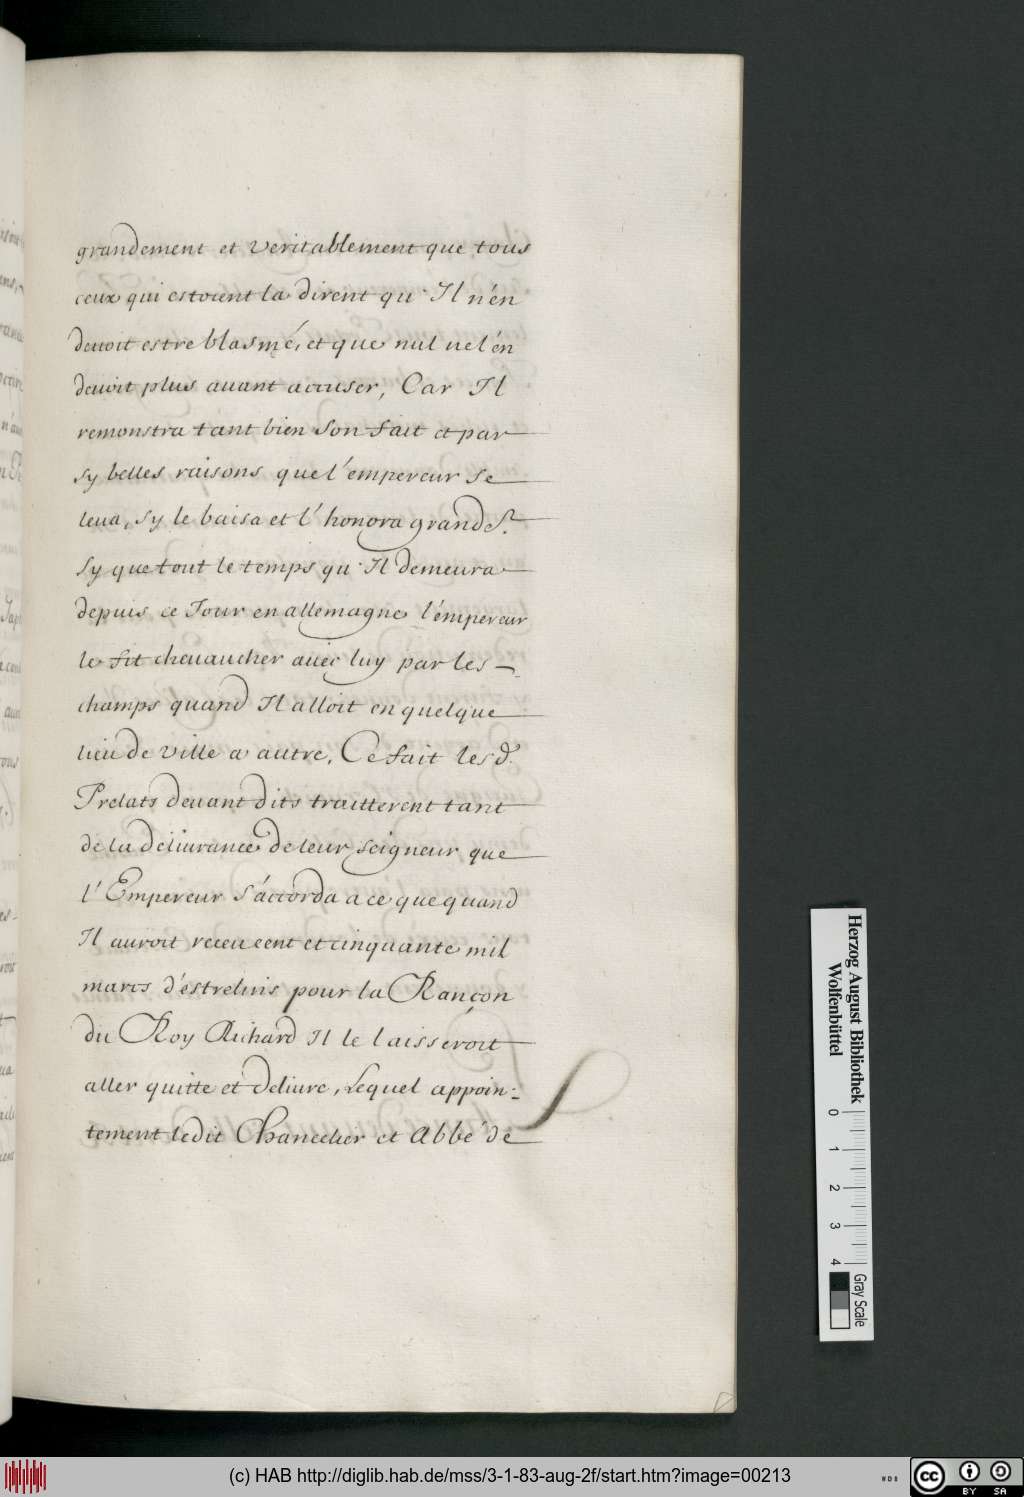 grandement et veritablement que tous
ceux qui estoient la dirent qu'Il n'én
deuoit estre blasmé, et que nul ne l'én
deuoit plus auant accuser, Car Il
remonstra tant bien son fait et par
sy belles raisons que l'empereur se
leua, sy le baisa et l'honora grandt.
sy que tout le temps qu'Il demeura
depuis ce Jour en allemagne l'émpereur
le fit cheuaucher auec luy par les
champs quand Il alloit en quelque
lieu de ville a autre, Ce fait les d.
Prelats deuant dits traitterent tant
de la deliurance de leur seigneur que
l'Empereur s'áccorda a ce que quand
Il auroit receu cent et cinquante mil
marcs d'éstrelins pour la Rançon
du Roy Richard Il le laisséroit
aller quitte et deliure, Lequel appoin-
tement ledit Chancelier et Abbé de
Herzog August Bibliothek
Wolfenbüttel
0 1 2 3 4
Gray Scale
(c) HAB http://diglib.hab.de/mss/3-1-83-aug-2f/start.htm?image=00213
WDB
cc BY SA